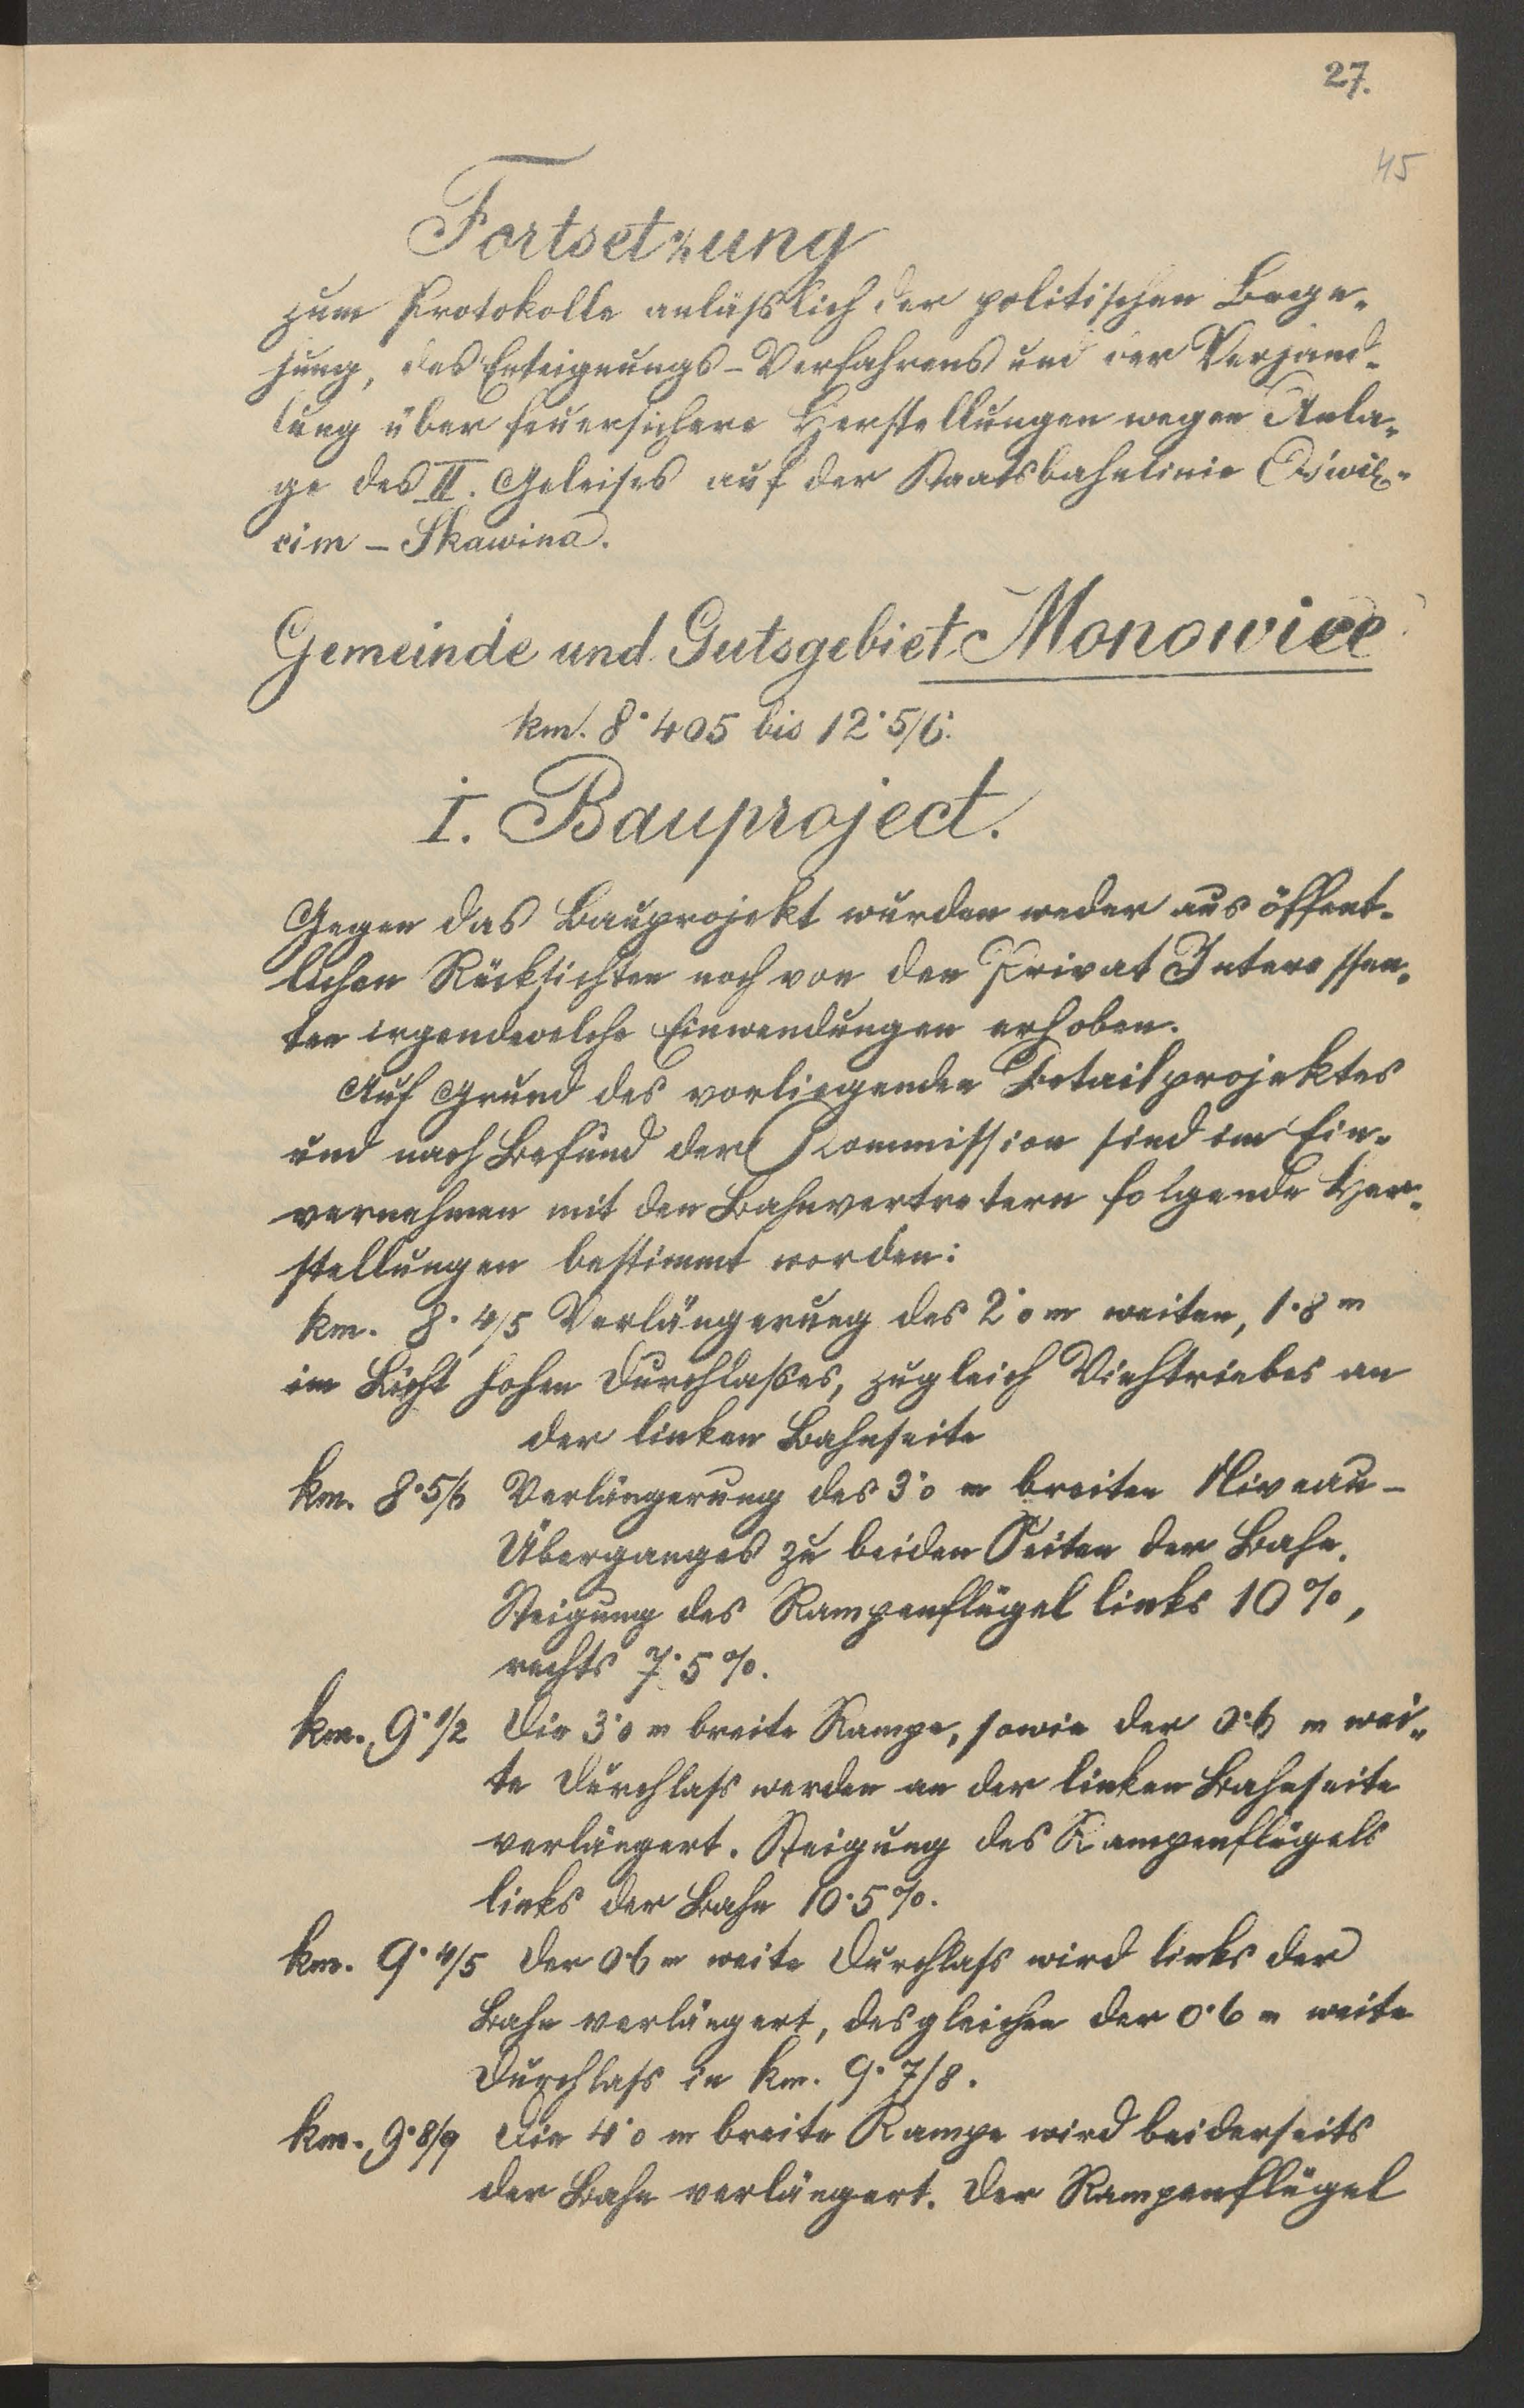 27.
45
Fortsetzung
zum Protokolle anläßlich der politischen Bege-
hung, des Enteignungs-Verfahrens und der Verhand-
lung über feuersichere Herstellungen wegen Anla-
ge des II. Geleises auf der Staatsbahnlinie Oświę-
cim - Skawina.
Gemeinde und Gutsgebiet Monowice
km. 8·405 bis 12·5/6.
I. Bauproject.
Gegen das Bauprojekt wurden weder aus öffent-
lichen Rücksichten noch von den Privat Interessen-
ten irgendwelche Einwendungen erhoben.
Auf Grund des vorliegenden Detailprojektes
und nach Befund der Kommission sind im Ein-
vernehmen mit den Bahnvertretern folgende Her-
stellungen bestimmt worden:
km. 8·4/5 Verlängerung des 2·0 m weiten, 1·8 m
im Licht hohen Durchlaßes, zugleich Viehtriebes an
der linken Bahnseite
km. 8·5/6 Verlängerung des 3·0 m breiten Niveau-
Überganges zu beiden Seiten der Bahn.
Steigung des Rampenflügel links 10%,
rechts 7·5%.
km. 9·1/2 Die 3·0 m breite Rampe, sowie der 0·6 m wei-
te Durchlass werden an der linken Bahnseite
verlängert. Steigung des Rampenflügels
links der Bahn 10·5%.
km. 9·4/5 Der 0·6 m weite Durchlass wird links der
Bahn verlängert, desgleichen der 0·6 m weite
Durchlass in km. 9·7/8.
km. 9·8/9 Die 4·0 m breite Rampe wird beiderseits
der Bahn verlängert. Der Rampenflügel